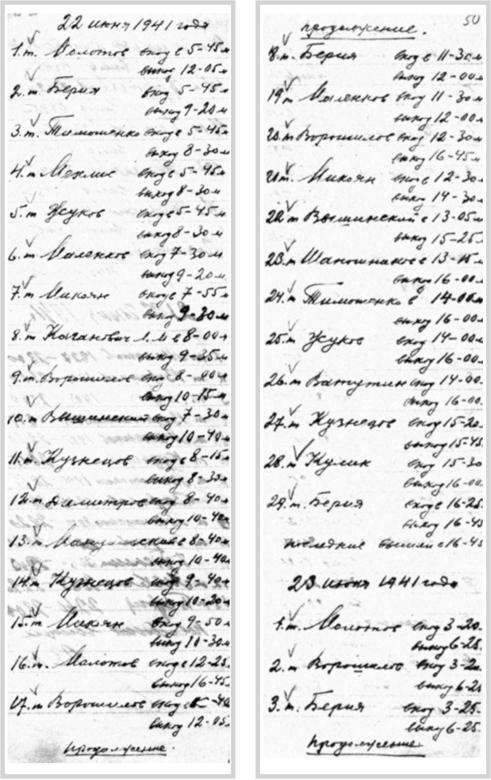 22 июня 1941 года
1. т. Молотов вход в 5-45 м
выход 12-05 м
2. т. Берия вход 5-45 м
выход 9-20 м
3. т. Тимошенко вход в 5-45 м
выход 8-30 м
4. т. Мехлис вход в 5-45 м
выход 8-30 м
5. т. Жуков вход в 5-45 м
выход 8-30 м
6. т. Маленков вход 7-30 м
выход 9-20 м
7. т. Микоян вход в 7-55 м
выход 9-30 м
8. т. Каганович Л.М. в 8-00 м
выход 9-35 м
9. т. Ворошилов вход 8-00 м
выход 10-15 м
10. т. Вышинский вход 7-30 м
выход 10-40 м
11. т. Кузнецов вход в 8-15 м
выход 8-30 м
12. т. Димитров вход 8-40 м
выход 10-40 м
13. т. в 8-40 м
выход 10-40 м
14. т. Кузнецов вход 9-40 м
выход 10-20 м
15. т. Микоян вход 9-50 м
выход 10-30 м
16. т. Молотов вход в 12-25 м
выход 16-45 м
17. т. Ворошилов вход
выход 12-05 м
продолжение.
50
продолжение.
18. т. Берия вход в 11-30 м
выход 12-00 м
19. т. Маленков вход 11-30 м
выход 12-00 м
20. т. Ворошилов вход 12-30 м
выход 16-45 м
21. т. Микоян вход в 12-30 м
выход 14-30 м
22. т. Вышинский в 13-05 м
выход 15-25 м
23. т. Шапошников в 13-15 м
выход 16-00 м
24. т. Тимошенко в 14-00 м
выход 16-00 м
25. т. Жуков вход 14-00 м
выход 16-00 м
26. т. Ватутин вход 14-00
выход 16-00
27. т. Кузнецов вход 15-20
выход 15-45
28. т. Кулик вход 15-30
выход 16-00
29. т. Берия вход в 16-25
выход 16-45
последние вышли в 16-45
23 июня 1941 года
1. т. Молотов вход 3-20
выход 6-25
2. т. Ворошилов вход 3-20
выход 6-25
3. т. Берия вход 3-25
выход 6-25
продолжение